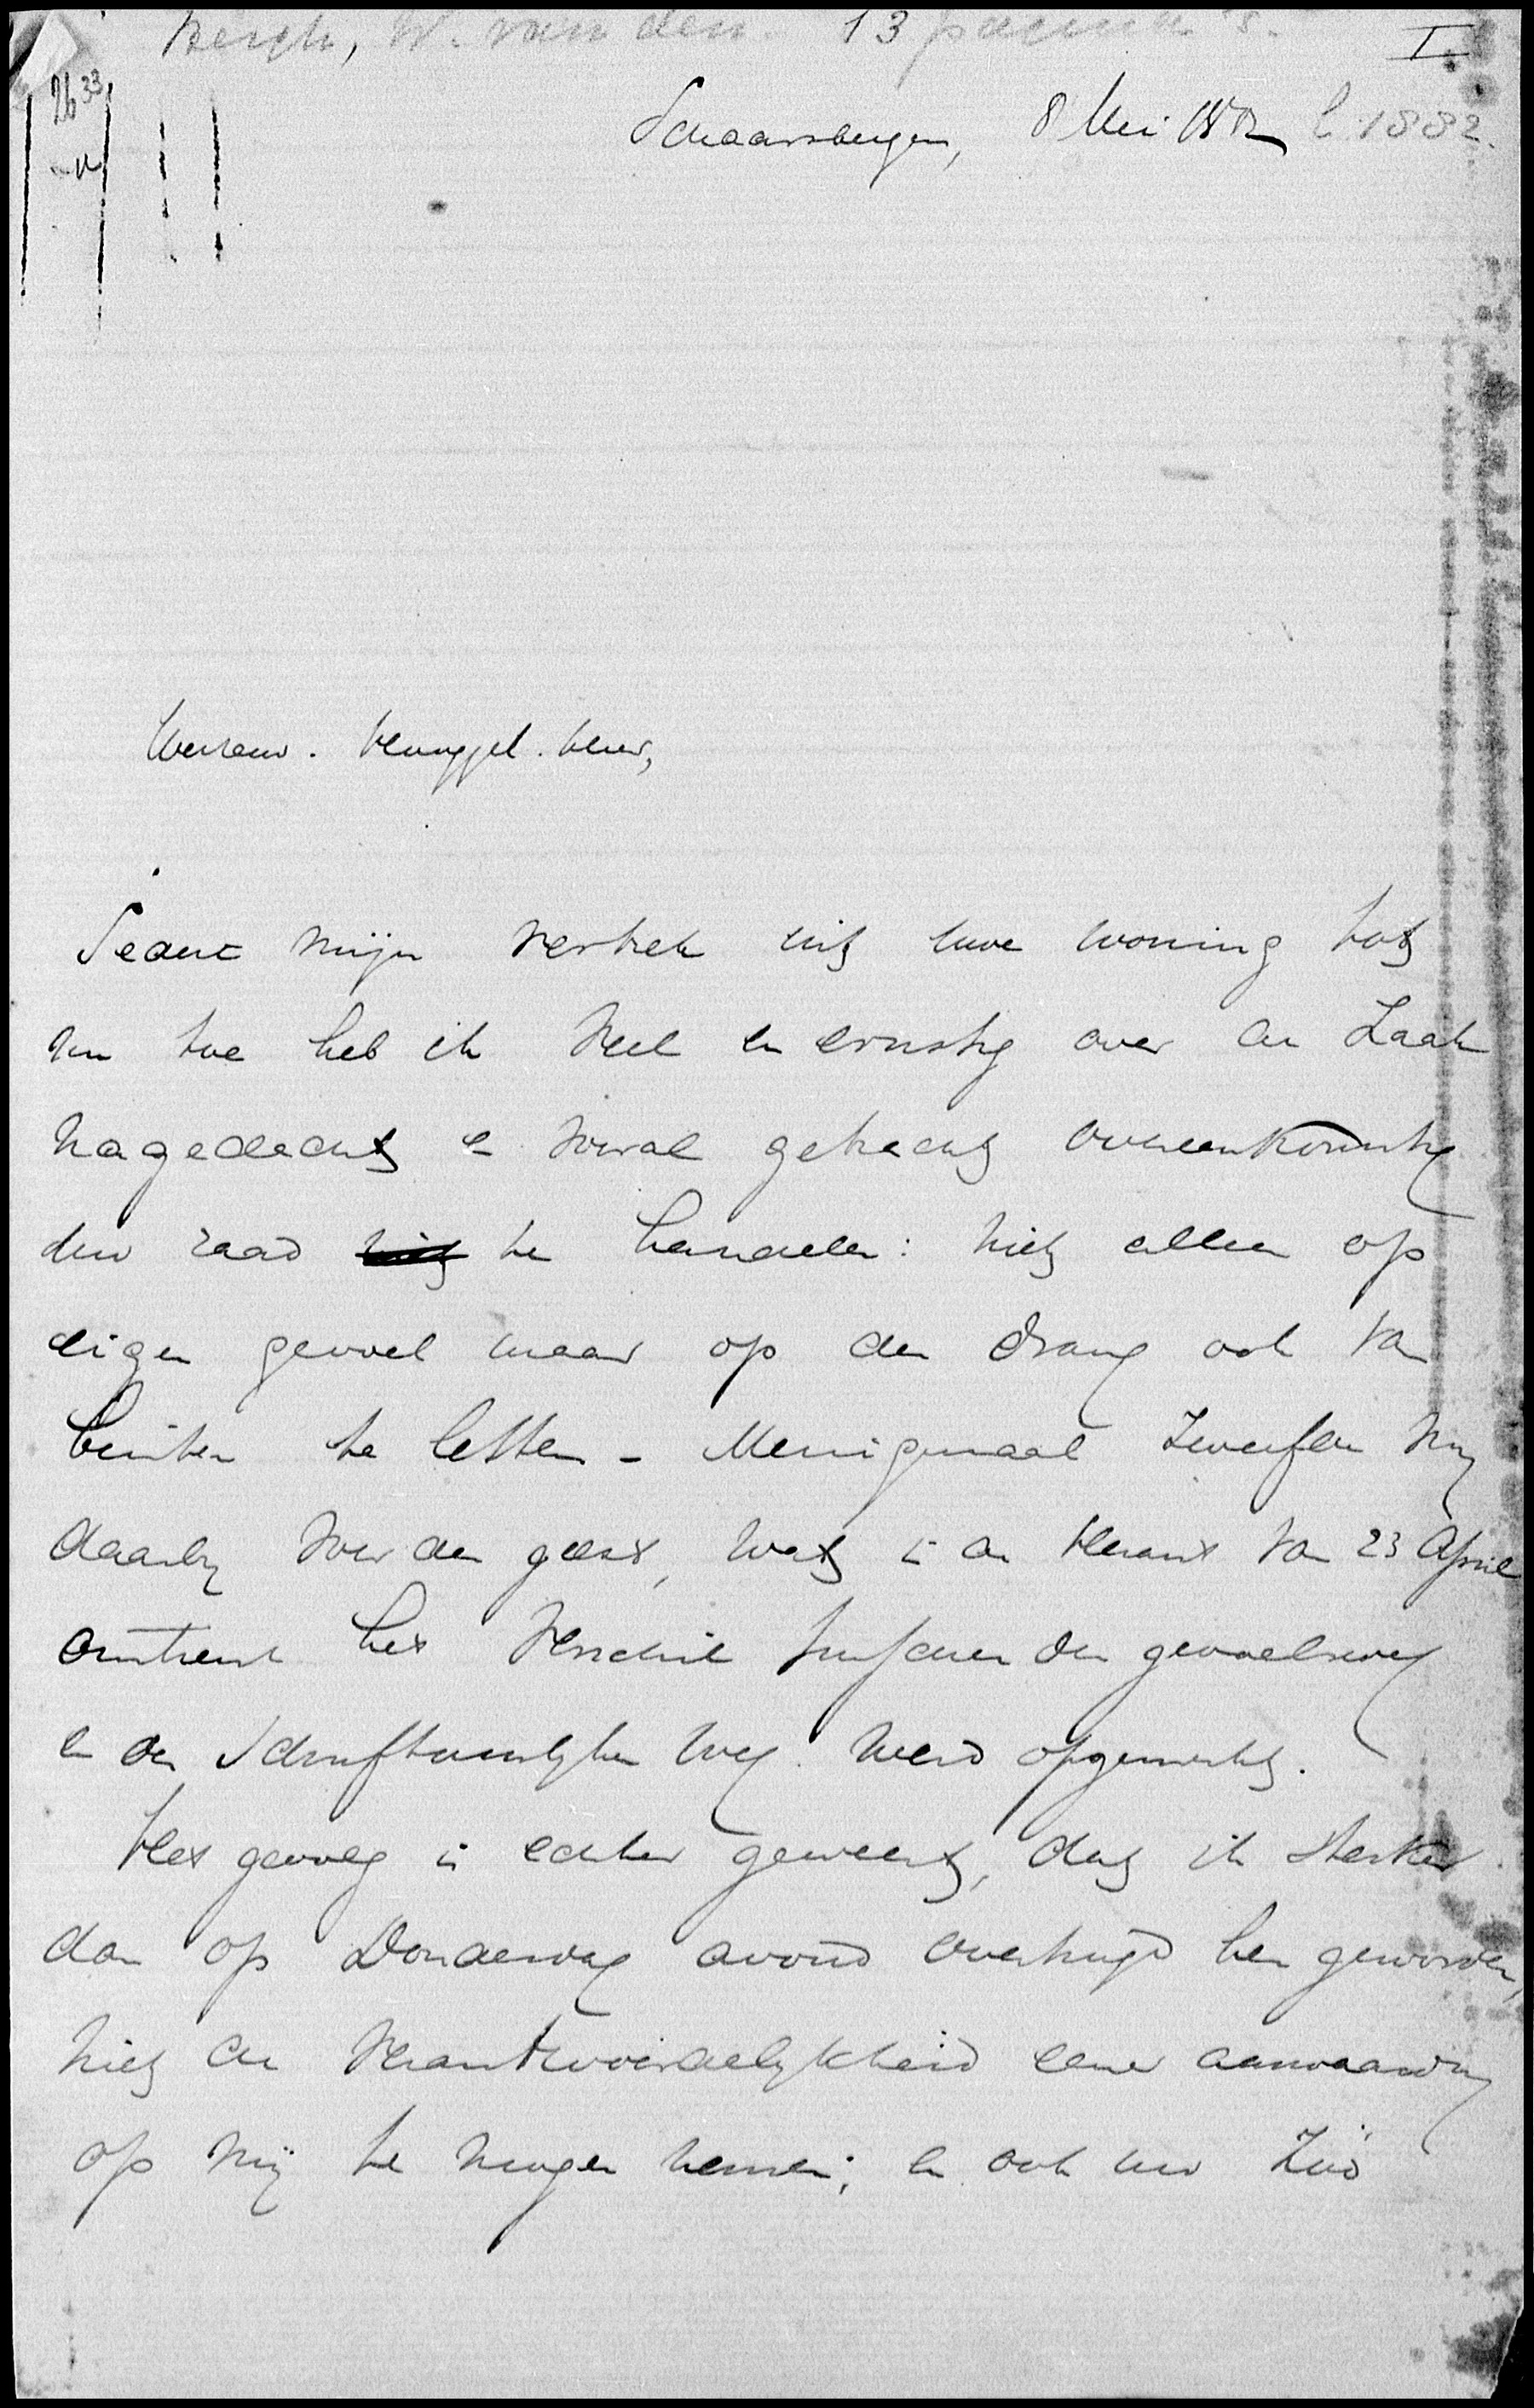 Bergh, W. van den. 13 pagina's. I.
2633
Schaarsbergen, 8 Mei 1882 1882.
Weleerw. Hooggel. Heer,
Sedert mijn vertrek uit uwe woning tot
nu toe heb ik veel en ernstig over de zaak
nagedacht en vooral getracht overeenkomstig
uw raad te handelen: niet alleen op
eigen gevoel maar op den drang ook van
buiten te letten – Menigmaal zweefde mij
daarbij voor den geest, wat in de Heraut van 23 April
omtrent het verschil tusschen den gevoelsweg
en den Schriftuurlijken weg werd opgemerkt.
Het gevolg is echter geweest, dat ik sterker
dan op Donderdag avond overtuigd ben geworden,
niet de verantwoordelijkheid eener aanvaarding
op mij te mogen nemen; en ook uw